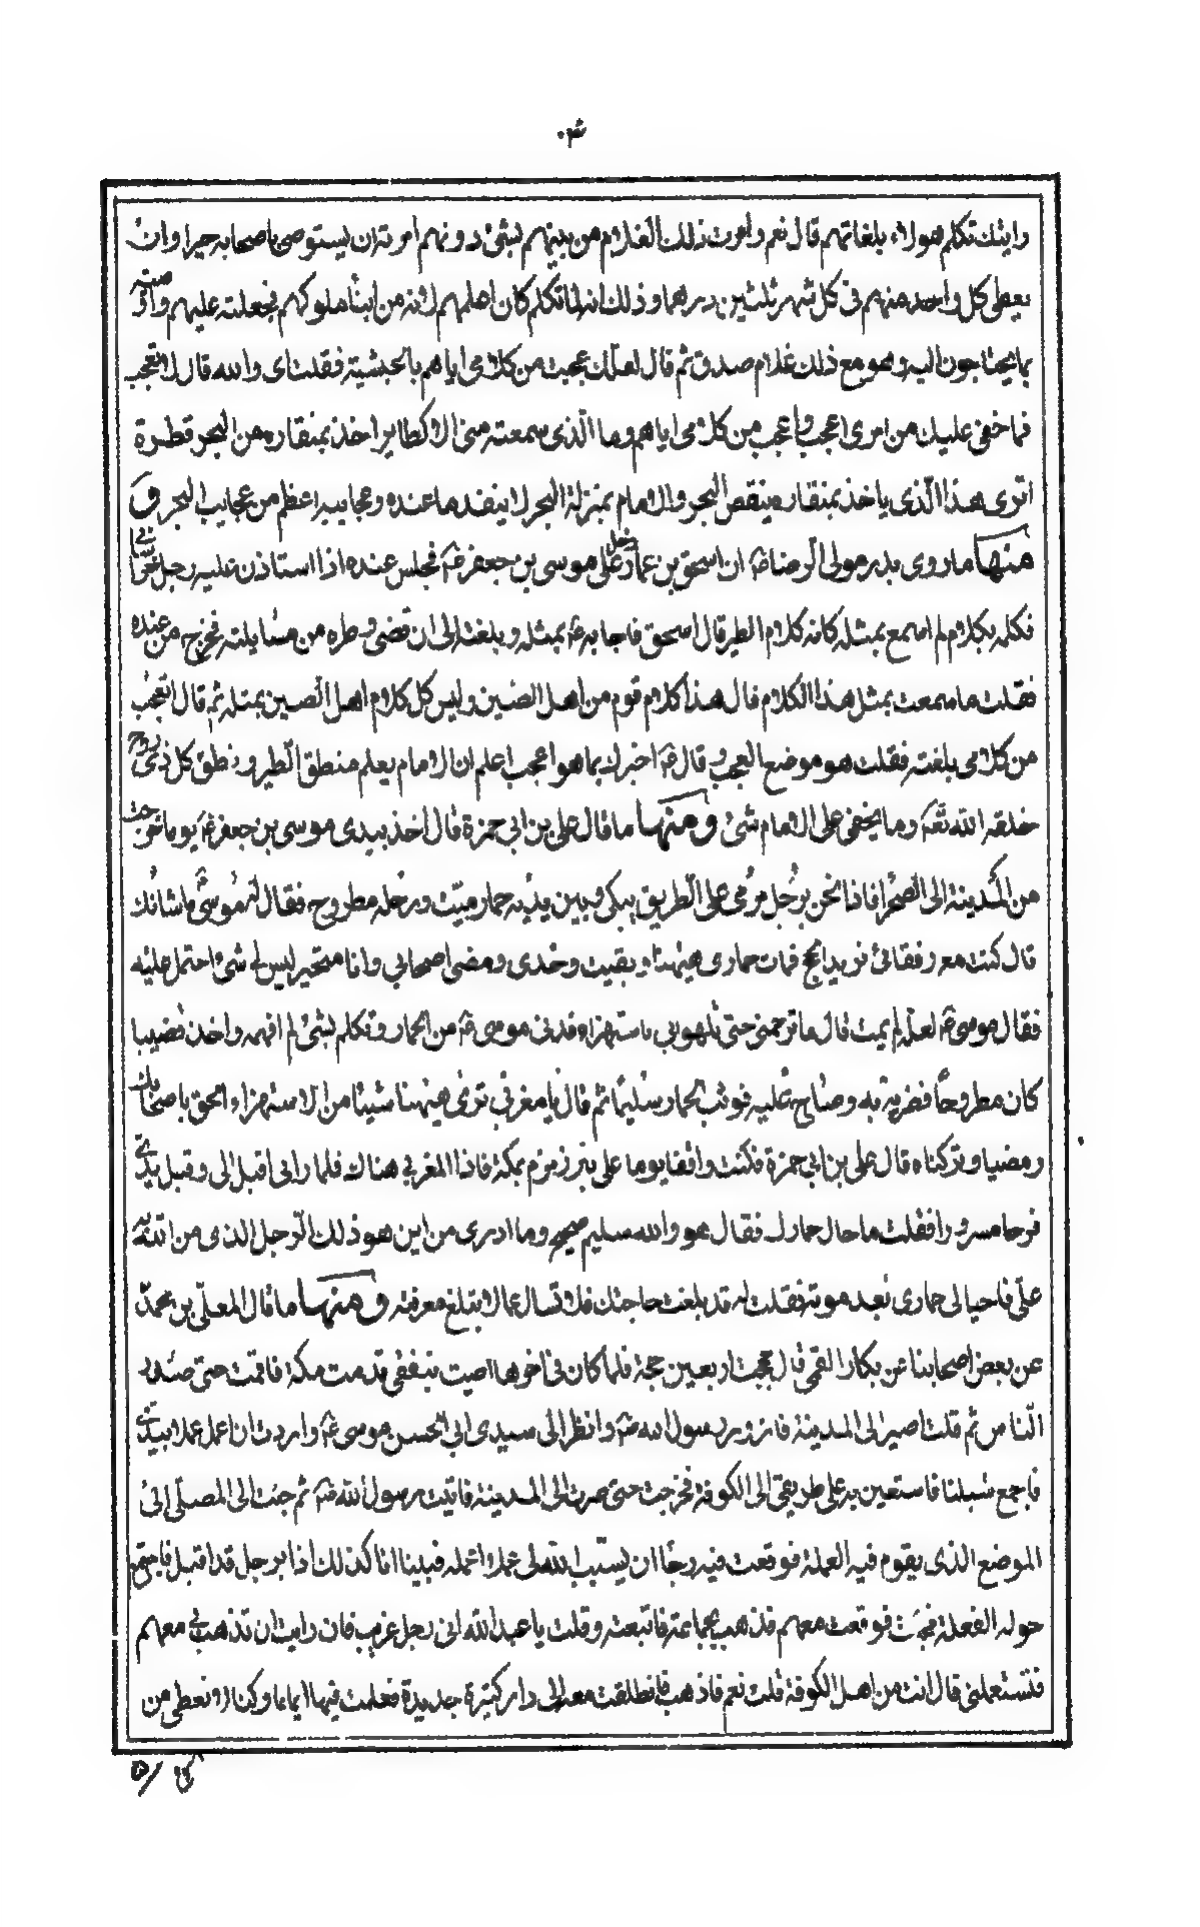 رايتك تكلم هولاء بلغاتهم قال نعم وامرت ذلك الغلام من بينهم بشئ دونهم امرته ان يستوصى باصحابه خيرا وان
يعطى كل واحد منهم فى كل شهر ثلثين درهما وذلك انه لما تكلم كان اعلمهم لانه من ابنا ملوكهم فجعلته عليهم واوصيته
بما يحتاجون اليه وهو مع ذلك غلام صدق ثم قال لعلك عجبت من كلامى اياهم بالحبشية فقلت اى والله قال لا تعجب
فما خفى عليك من امرى اعجب واعجب من كلامى اياهم وما الذى سمعته منى الا كطاير اخذ بمنقاره من البحر قطرة
اترى هذا الذى ياخذ بمنقاره ينقص البحر والامام بمنزلة البحر لا ينفد ما عنده وعجايبه اعظم من عجايب البحر و
منها ما روى بدر مولى الرضا ع ان اسحق بن عمار دخل على موسى بن جعفر ع فجلس عنده اذا استاذن عليه رجل خراسانى
فكلمه بكلام لم اسمع بمثله كانه كلام الطير قال اسحق فاجابه ع بمثله وبلغته الى ان قضى وطره من مسايلته فخرج من عنده
فقلت ما سمعت بمثل هذا الكلام قال هذا كلام قوم من اهل الصين وليس كل كلام اهل الصين بمثله ثم قال اتعجب
من كلامى بلغته فقلت هو موضع العجب وقال ع اخبرك بما هو اعجب اعلم ان الامام يعلم منطق الطير ونطق كل ذى روح
خلقه الله تعه وما يخفى على الامام شئ ومنها ما قال على بن ابى حمزة قال اخذ بيدى موسى بن جعفر ع يوما فخرجت
من المدينة الى الصحرا فاذا نحن برجل مرمى على الطريق يبكى وبين يديه حمار ميت ورحله مطروح فقال له موسى ما شانك
قال كنت مع رفقائى نريد الحج فمات حمارى هيهنا وبقيت وحدى ومضى اصحابى وانا متحير ليس لى شئ احتمل عليه
فقال موسى ع لعله لم يمت قال ما ترحمنى حتى تلهو بى باستهزاء فدنى موسى ع من الحمار وتكلم بشئ لم افهمه واخذ قضيبا
كان مطروحا فضربه به وصاح عليه فوثب الحمار سليما ثم قال يا مغربى ترى هيهنا شيئا من الاستهزاء الحق باصحابك
ومضيا وتركناه قال على بن ابى حمزة فكنت واقفا يوما على بئر زمزم بمكة فاذا المغربى هناك فلما رانى اقبل الى وقبل يدى
فرحا مسرورا فقلت ما حال حمارك فقال هو والله سليم صحيح وما ادرى من اين هو ذلك الرجل الذى من الله به
على فاحيا لى حمارى بعد موته فقلت له قد بلغت حاجتك فلا تسال عما لا تبلغ معرفته ومنها ما قال المعلى بن محمد
عن بعض اصحابنا عن بكار القمى قال حججت اربعين حجة فلما كان فى اخرها اصيبت بنفقتى فقدمت مكة فاقمت حتى صدر
الناس ثم قلت اصير الى المدينة فازور رسول الله ص وانظر الى سيدى ابى الحسن موسى ع واردت ان اعمل عملا بيدى
فاجمع شيئا فاستعين به على طريقى الى الكوفة فخرجت حتى صرت الى المدينة فاتيت رسول الله ص ثم جئت الى المصلى الى
الموضع الذى يقوم فيه العملة فوقعت فيه رجا ان يسبب الله لى عملا اعمله فبينا انا كذلك اذا برجل قد اقبل فاجتمع
حوله الفعلة فجئت فوقعت معهم فذهب بجماعة فاتبعته وقلت يا عبد الله انى رجل غريب فان رايت ان تذهب بى معهم
فتستعملنى قال انت من اهل الكوفة قلت نعم قال اذهب فانطلقت معه الى دار كبيرة جديدة فعملت فيها اياما وكنا لا نعطى من